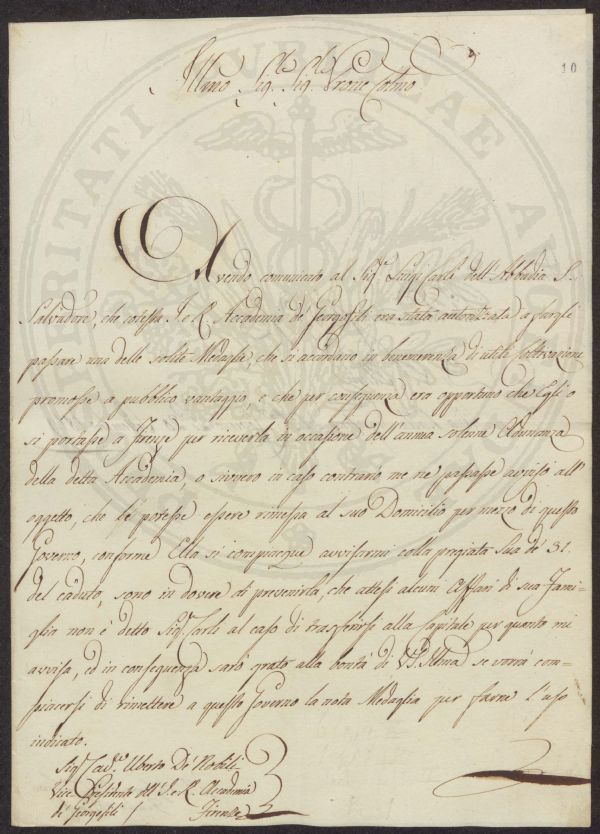 10
Illmo Sig. Sig. Prone Colmo
Avendo comunicato al Sig.r Luigi Carli dell'Abbadia S.
Salvadore, che cotesta I. e R. Accademia de' Georgofili era stata autorizzata a fargli
passare una delle solite Medaglie, che si accordano in benemerenza di utili coltivazioni
promosse a pubblico vantaggio, e che per conseguenza era opportuno che Egli o
si portasse a Firenze per riceverla in occasione dell'annua solenne Adunanza
della detta Accademia, o sivvero in caso contrario me ne passasse avviso all'
oggetto, che le potesse essere rimessa al suo Domicilio per mezzo di questo
Governo, conforme Ella si compiacque avvisarmi colla pregiata Sua de' 31.
del caduto, sono in dovere di prevenirla, che attesi alcuni Affari di sua Fami-
glia non è detto Sig.r Carli al caso di trasferirsi alla Capitale per quanto mi
avvisa, ed in conseguenza sarò grato alla bontà di VS. Illma se vorrà com-
piacersi di rimettere a questo Governo la nota Medaglia per farne l'uso
indicato.
Sig.r Cav.e Uberto De' Nobili
Vice Presidente dell'I. e R. Accademia
de' Georgofili Firenze